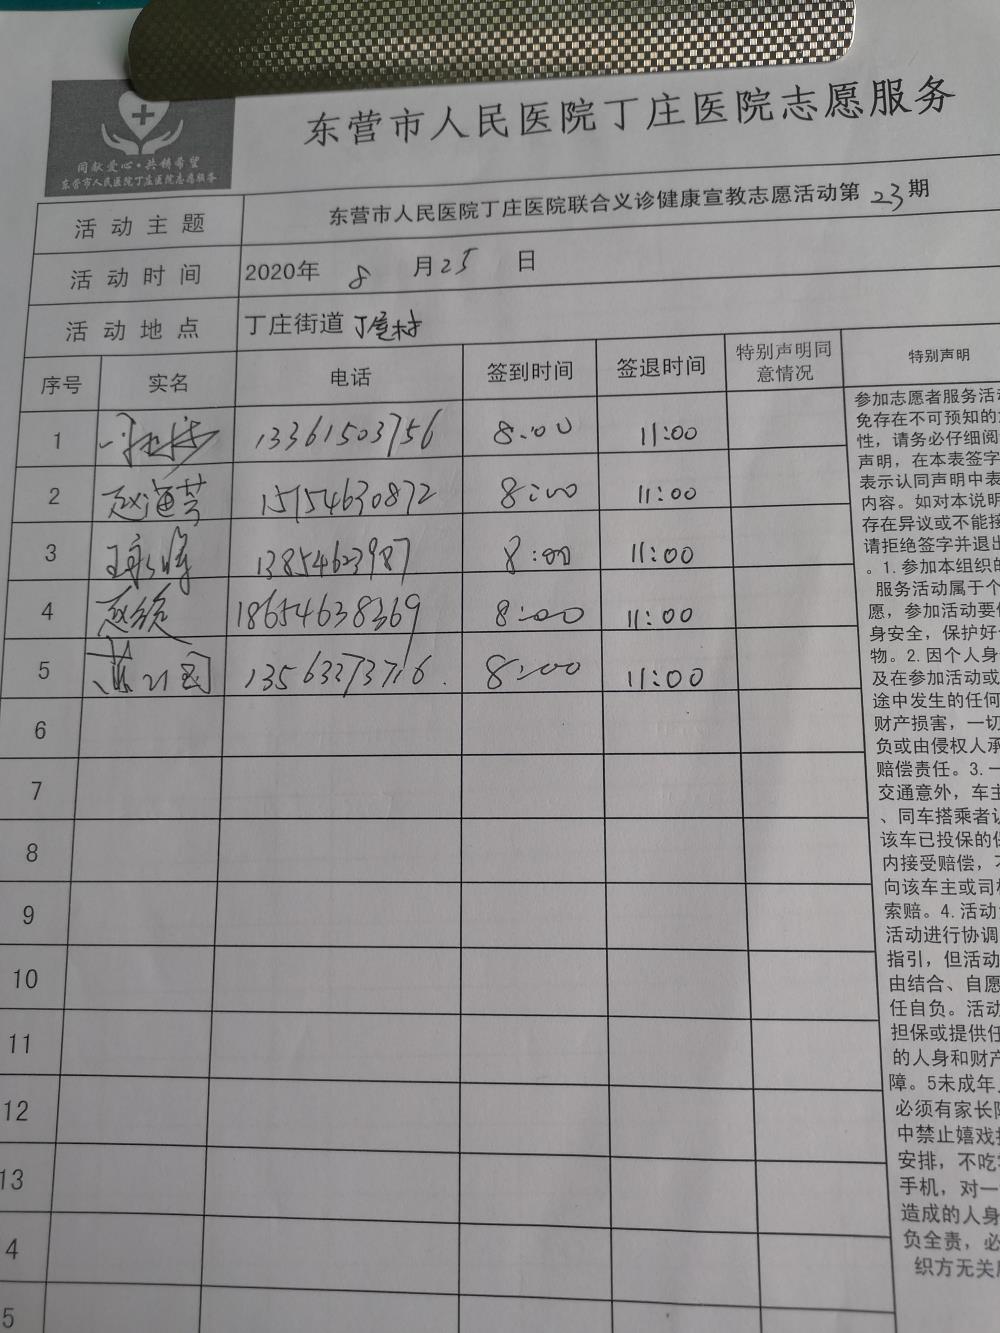 东营市人民医院丁庄医院志愿服务
同献爱心·共铸希望
东营市人民医院丁庄医院志愿服务
活动主题 东营市人民医院丁庄医院联合义诊健康宣教志愿活动第23期
活动时间 2020年 8 月25 日
活动地点 丁庄街道
序号 实名 电话 签到时间 签退时间 特别声明同意情况 特别声明
1 13361503756 8:00 11:00
2 赵海芸 15154630872 8:00 11:00
3 13854623987 8:00 11:00
4 18654638369 8:00 11:00
5 8:00 11:00
6
7
8
9
10
11
12
13
4
5
参加志愿者服务活动
免存在不可预知的
性，请务必仔细阅
声明，在本表签字
表示认同声明中表
内容。如对本说明
存在异议或不能接
请拒绝签字并退出
。1.参加本组织的
服务活动属于个
愿，参加活动要
身安全，保护好
物。2.因个人身
及在参加活动或
途中发生的任何
财产损害，一切
负或由侵权人承
赔偿责任。3.一
交通意外，车主
、同车搭乘者
该车已投保的
内接受赔偿，不
向该车主或司机
索赔。4.活动
活动进行协调
指引，但活动
由结合、自愿
任自负。活动
担保或提供任
的人身和财产
障。5未成年
必须有家长陪
中禁止嬉戏
安排，不吃
手机，对一
造成的人身
负全责，必
织方无关